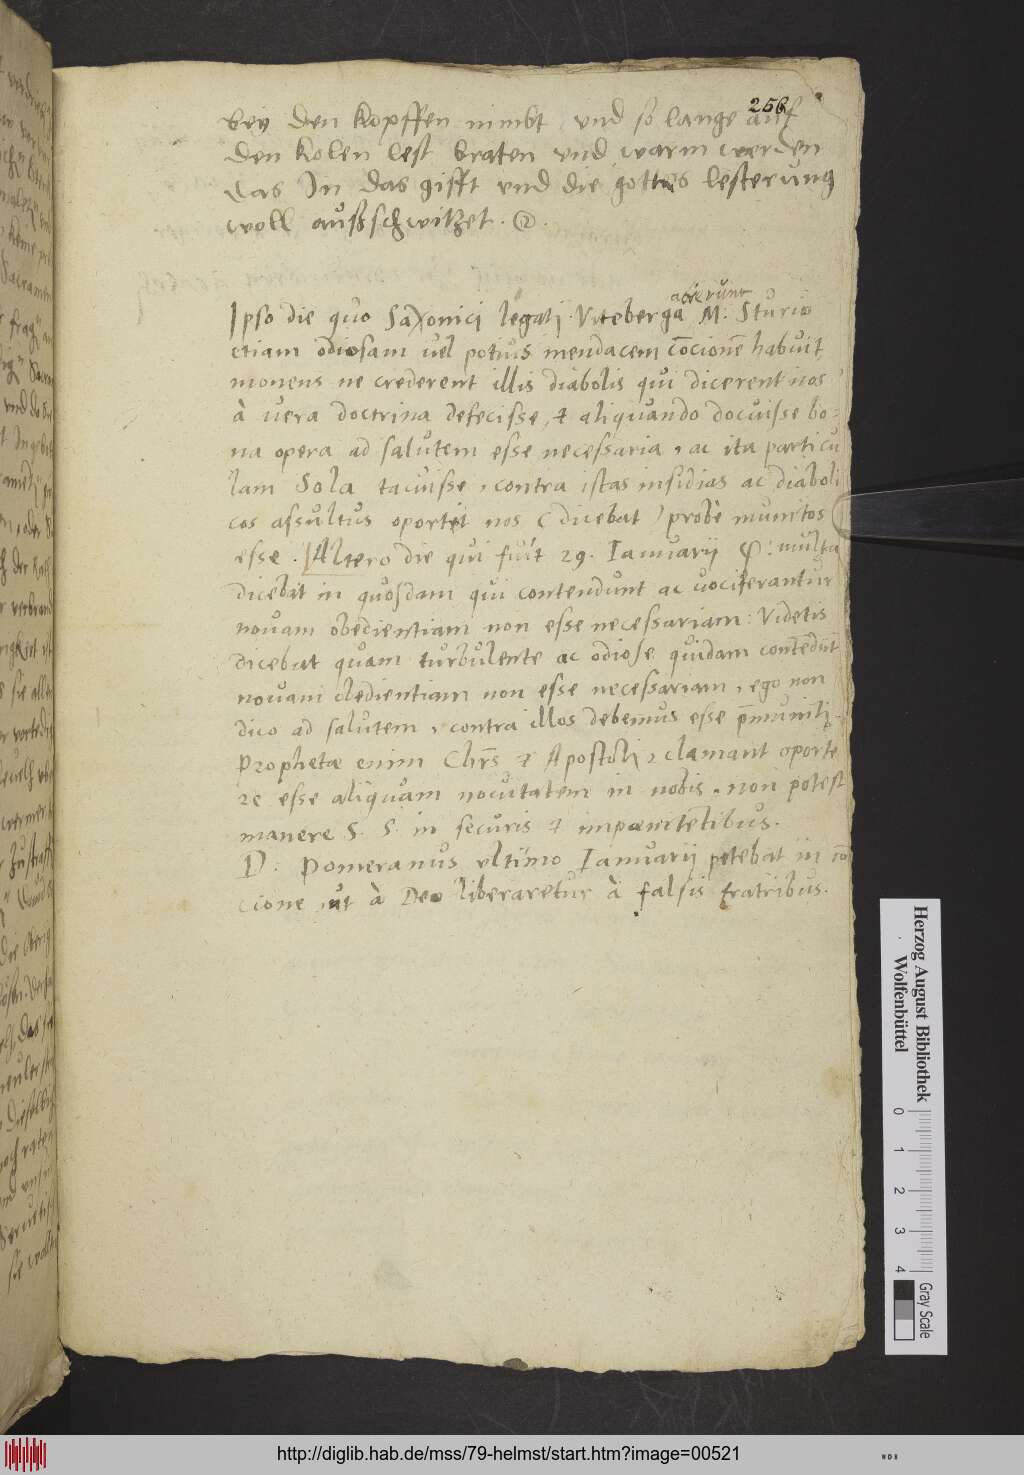 256
bey den kopffen nimbt und so lange auf
den kolen lest braten und warm werden
das In das gifft und die gottes lesterung
woll außschwitzet.
abierunt
Ipso die quo Saxonici legati Viteberga M: Sturio
etiam odiosam vel potius mendacem cōcionē habuit,
monens ne crederent illis diabolis qui dicerent nos
à vera doctrina defecisse, & aliquando docuisse bo=
na opera ad salutem esse necessaria, ac ita particu
lam Sola tacuisse, contra istas insidias ac diaboli
cos assultus oportet nos (dicebat) probè munitos
esse. Altero die qui fuit 29. Ianuarij P: multa
dicebat in quosdam qui contendunt ac vociferantur
novam obedientiam non esse necessariam: Videtis
dicebat quam turbulente ac odiose quidam contēdūt
novam obedientiam non esse necessariam, ego non
dico ad salutem, contra illos debemus esse p̄muniti.
Prophetæ enim Chrs̄ & Apostoli, clamant oporte
re esse aliquam novitatem in nobis, non potest
manere S. S. in securis & impœnitētibus.
D: Pomeranus ultimo Ianuarij petebat in cō
cione ut à Deo liberaretur à falsis fratribus.
Herzog August Bibliothek
Wolfenbüttel
0 1 2 3 4
Gray Scale
http://diglib.hab.de/mss/79-helmst/start.htm?image=00521
WDB